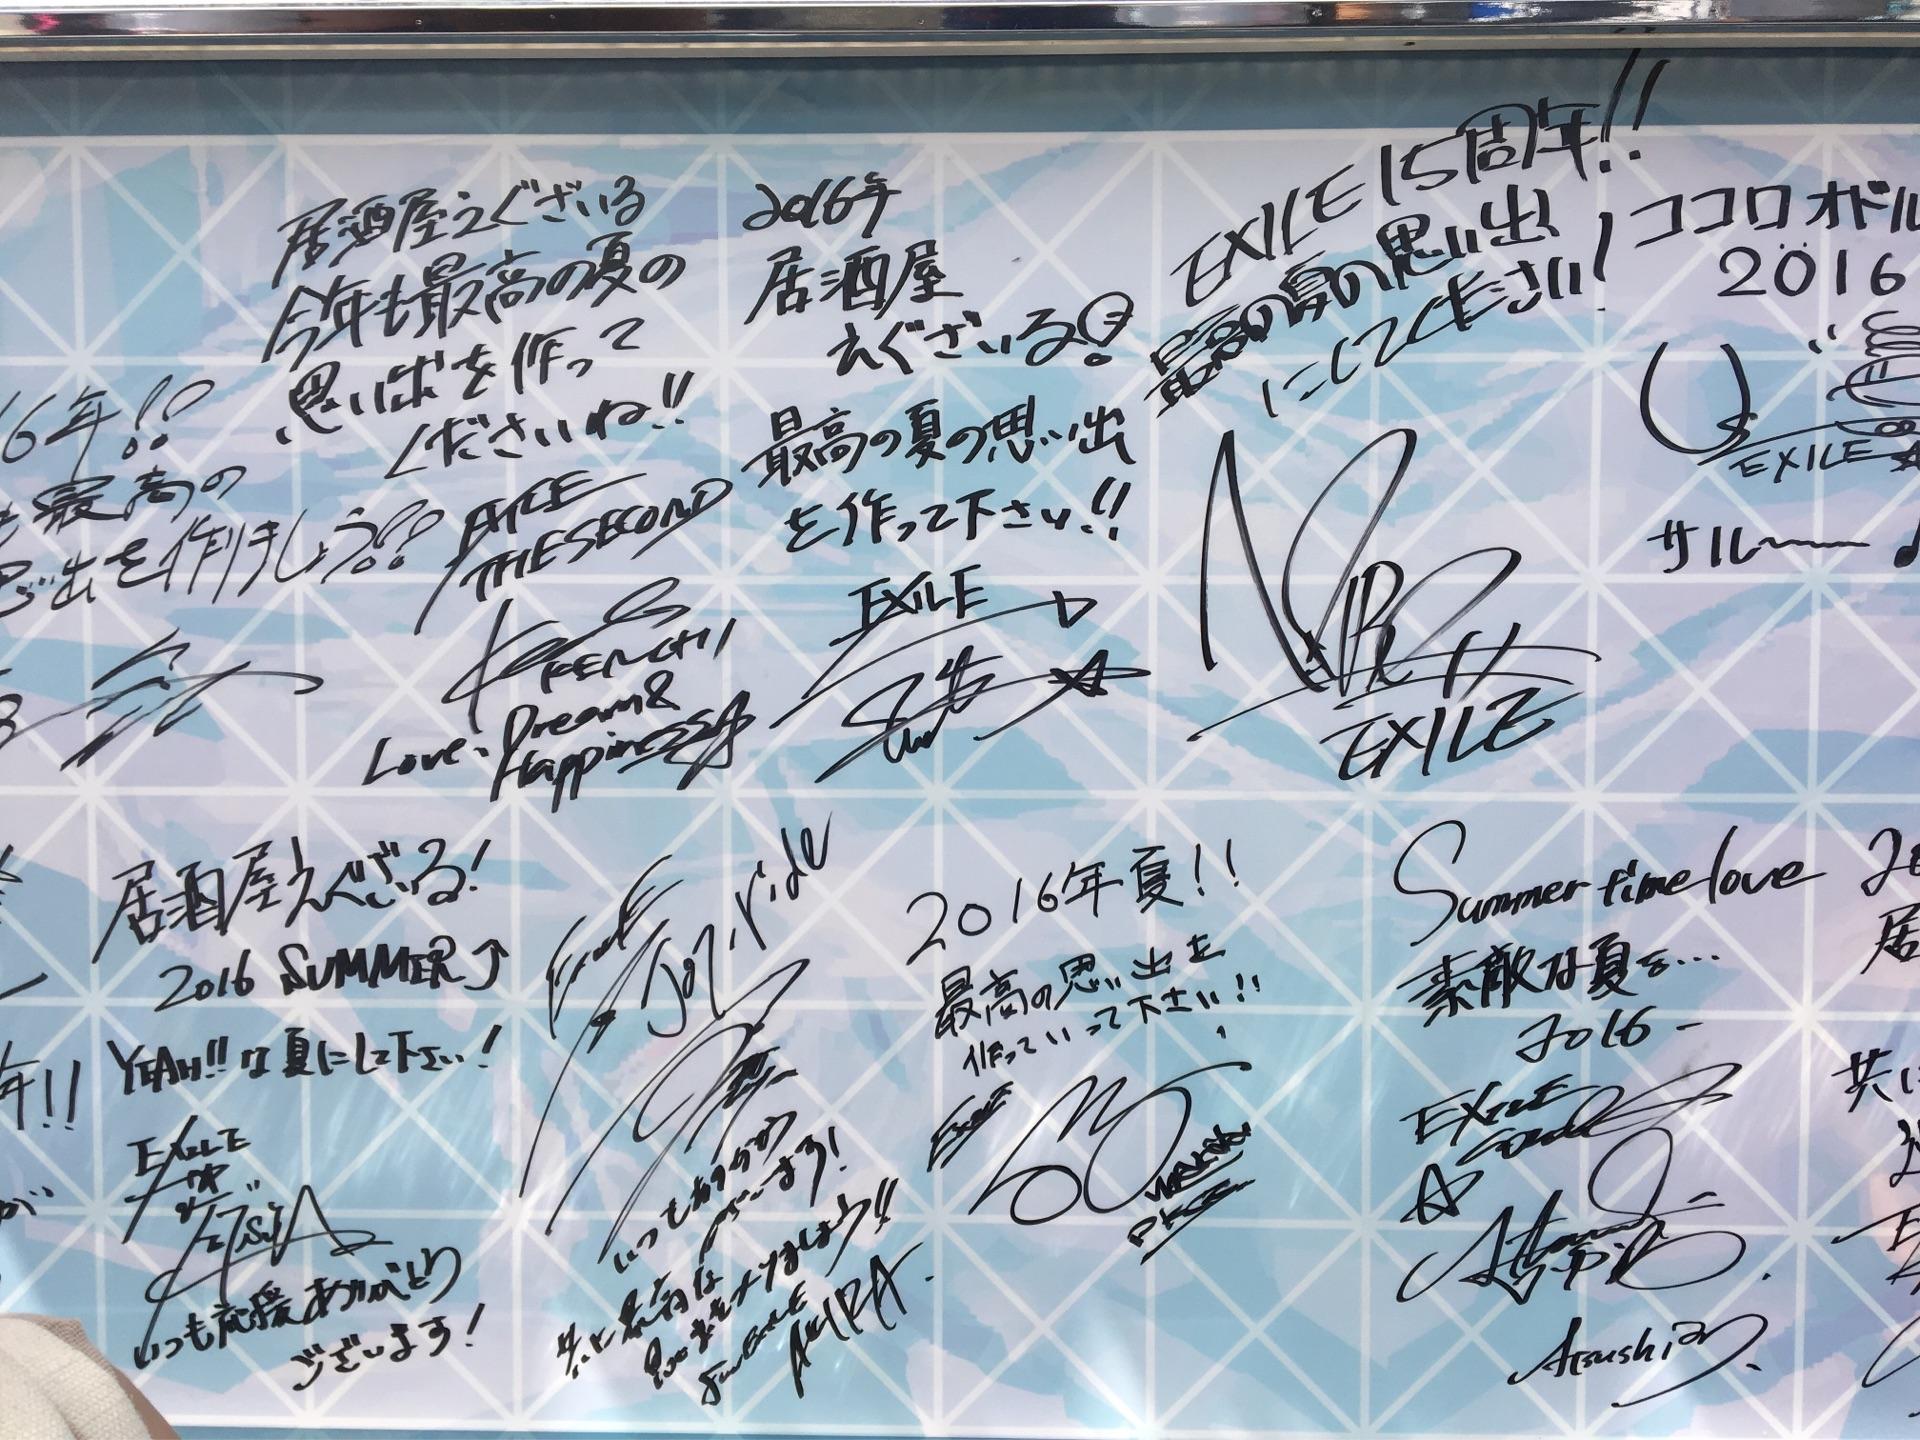 居酒屋えぐざいる
今年も最高の夏の
思い出を作って
くださいね!!
THE SECOND
KENCHI
Love, Dream &
Happiness
2016年
居酒屋
えぐざいる
最高の夏の思い出
を作って下さい!!
EXILE
EXILE 15周年!!
最高の夏の思い出
にして下さい!
EXILE
ココロオドル
2016
EXILE
サルーー♪
6年!!
最高の
出を作りましょう!!
居酒屋えぐざいる!
2016 SUMMER↑
YEAH!!な夏にして下さい!
EXILE
いつも応援ありがとう
ございます!
Joy-ride
いつもありがとう
ございます!
共に最高な
EXILE
AKIRA
2016年夏!!
最高の思い出を
作っていって下さい!!
Summer time love
素敵な夏を…
2016-
EXILE
Atsushi
居
共に
年!!